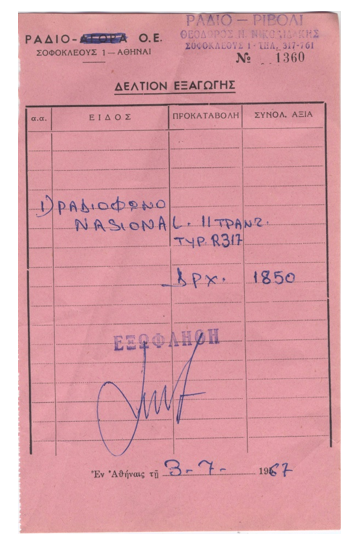 ΡΑΔΙΟ- Ο.Ε.
ΣΟΦΟΚΛΕΟΥΣ 1 — ΑΘΗΝΑΙ
ΡΑΔΙΟ — ΡΙΒΟΛΙ
ΘΕΟΔΩΡΟΣ Η.
ΣΟΦΟΚΛΕΟΥΣ 1 - ΤΗΛ. 317-761
№ 1360
ΔΕΛΤΙΟΝ ΕΞΑΓΩΓΗΣ
α.α. ΕΙΔΟΣ ΠΡΟΚΑΤΑΒΟΛΗ ΣΥΝΟΛ. ΑΞΙΑ
1) ΡΑΔΙΟΦΩΝΟ
NASIONAL. 11 ΤΡΑΝΖ.
TYP. R317
ΔΡΧ. 1850
ΕΞΩΦΛΗΘΗ
Ἐν Ἀθήναις τῇ 3-7- 1967